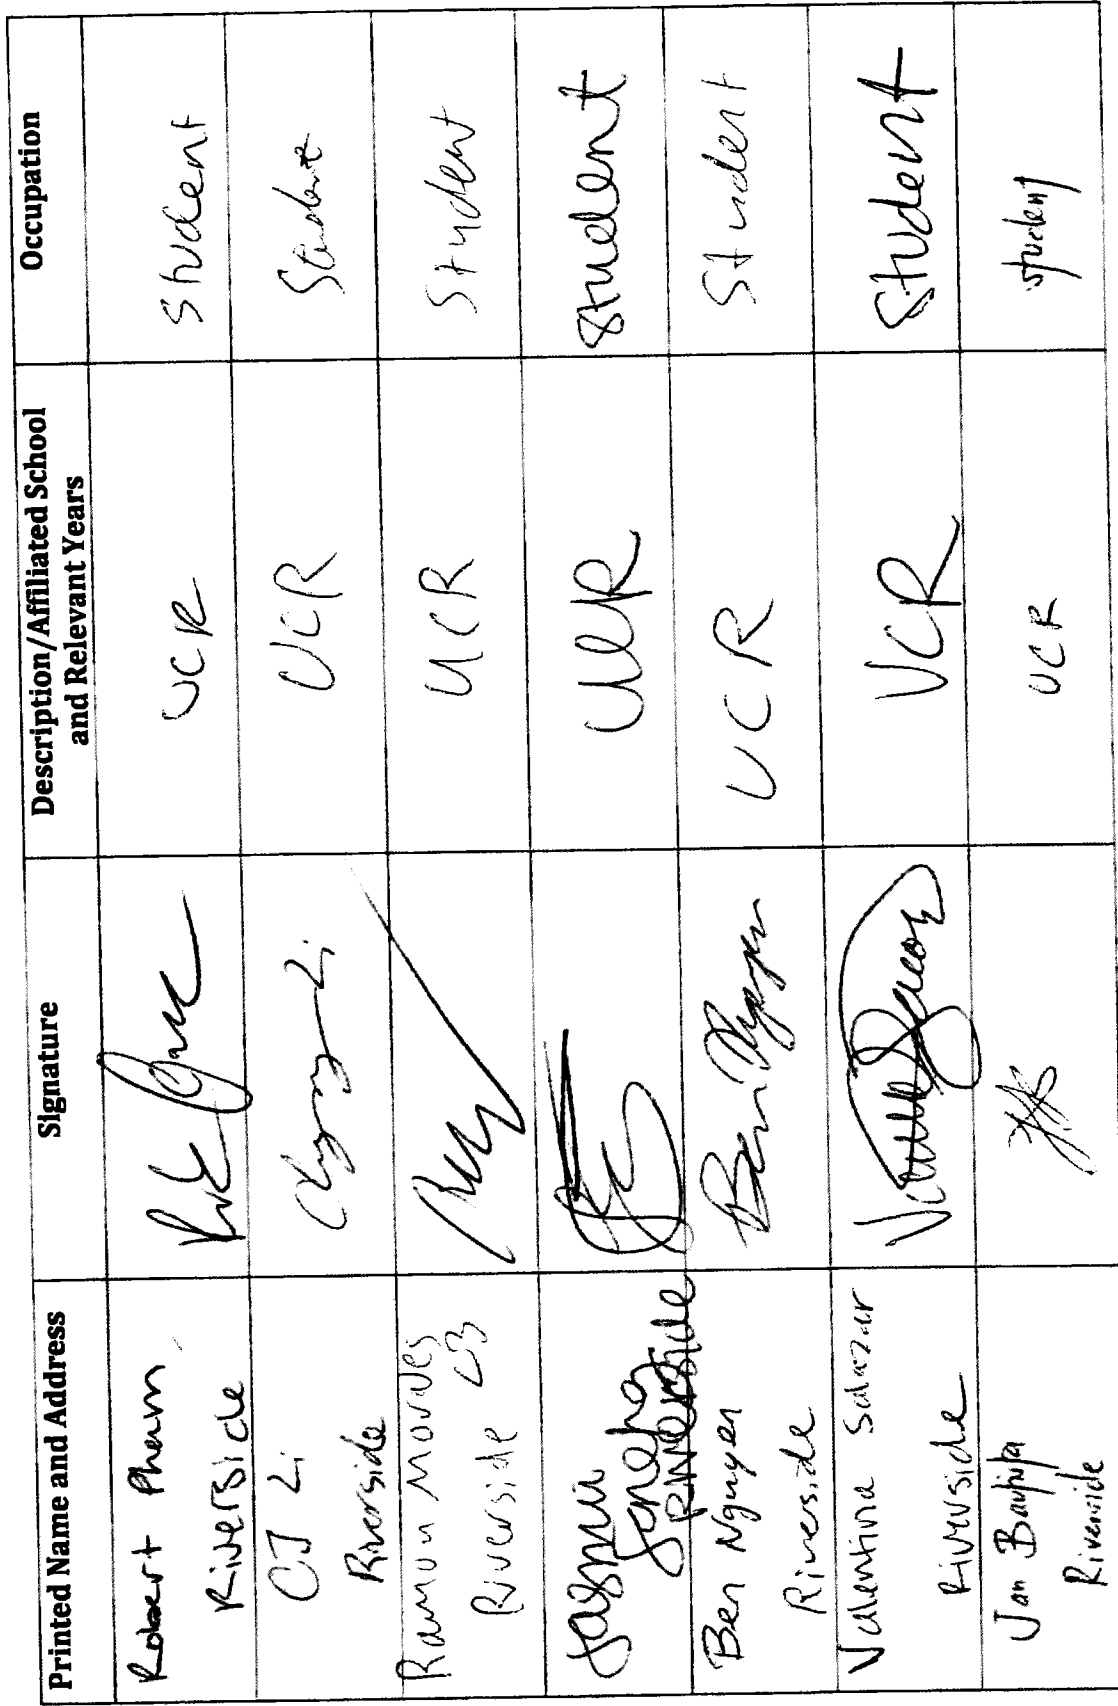 Printed Name and Address
Signature
Description/Affiliated School
and Relevant Years
Occupation
Robert Pham
Riverside
UCR
Student
CJ Li
Riverside
Li
UCR
Student
Ramon Morales
Riverside
UCR
Student
Riverside
UCR
Student
Ben Nguyen
Riverside
Ben Nguyen
UCR
Student
Valentina Salazar
Riverside
UCR
Student
Jan Bautista
Riverside
UCR
student